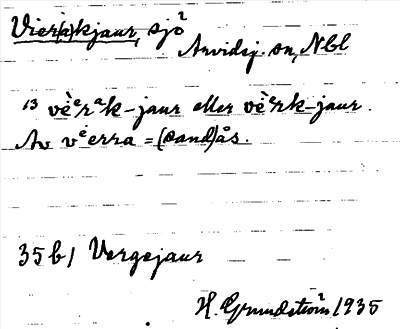 Vier(a)kjaur, sjö
Arvidsj. sn, Nbl
13 vèᵉrᵃk-jaur eller vèᵉrk-jaur.
Av vᵉerra = (sand)ås.
35 b/ Vergejaur
H. Grundström 1935